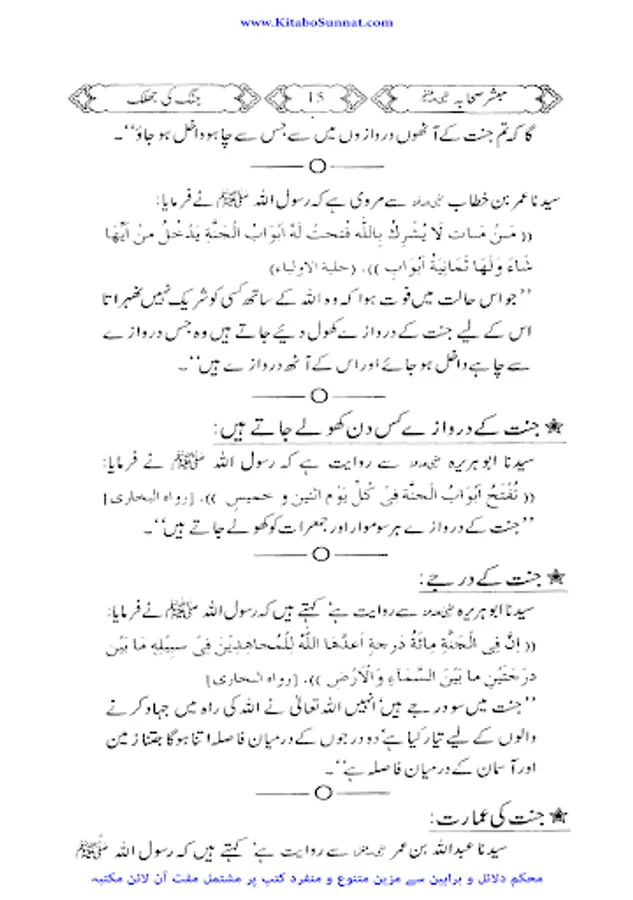 www.KitaboSunnat.com
مبشر صحابہ رضی اللہ عنہم 15 جنگ کی جھلک
گا کہ تم جنت کے آٹھوں دروازوں میں سے جس سے چاہو داخل ہو جاؤ‘‘۔
سیدنا عمر بن خطاب سے مروی ہے کہ رسول اللہ ﷺ نے فرمایا:
(( مَنْ مَاتَ لَا يُشْرِكُ بِاللّٰهِ فُتِحَتْ لَهُ أَبْوَابُ الْجَنَّةِ يَدْخُلُ مِنْ أَيِّهَا
شَاءَ وَلَهَا ثَمَانِيَةُ أَبْوَابٍ )). (حلية الاولياء)
’’جو اس حالت میں فوت ہوا کہ وہ اللہ کے ساتھ کسی کو شریک نہیں ٹھہراتا
اس کے لیے جنت کے دروازے کھول دیئے جاتے ہیں وہ جس دروازے
سے چاہے داخل ہو جائے اور اس کے آٹھ دروازے ہیں‘‘۔
جنت کے دروازے کس دن کھولے جاتے ہیں:
سیدنا ابو ہریرہ سے روایت ہے کہ رسول اللہ ﷺ نے فرمایا:
(( تُفْتَحُ أَبْوَابُ الْجَنَّةِ فِىْ كُلِّ يَوْمِ اثْنَيْنِ وَ خَمِيسٍ )). [رواه البخارى]
’’جنت کے دروازے ہر سوموار اور جمعرات کو کھولے جاتے ہیں‘‘۔
جنت کے درجے:
سیدنا ابو ہریرہ سے روایت ہے‘ کہتے ہیں کہ رسول اللہ ﷺ نے فرمایا:
(( إِنَّ فِى الْجَنَّةِ مِائَةَ دَرَجَةٍ أَعَدَّهَا اللّٰهُ لِلْمُجَاهِدِيْنَ فِىْ سَبِيْلِهِ مَا بَيْنَ
دَرَجَتَيْنِ مَا بَيْنَ السَّمَاءِ وَالْاَرْضِ )). [رواه البخارى]
’’جنت میں سو درجے ہیں‘ انہیں اللہ تعالیٰ نے اللہ کی راہ میں جہاد کرنے
والوں کے لیے تیار کیا ہے‘ دو درجوں کے درمیان فاصلہ اتنا ہوگا جتنا زمین
اور آسمان کے درمیان فاصلہ ہے‘‘۔
جنت کی عمارت:
سیدنا عبداللہ بن عمر سے روایت ہے‘ کہتے ہیں کہ رسول اللہ ﷺ
محکم دلائل و براہین سے مزین متنوع و منفرد کتب پر مشتمل مفت آن لائن مکتبہ